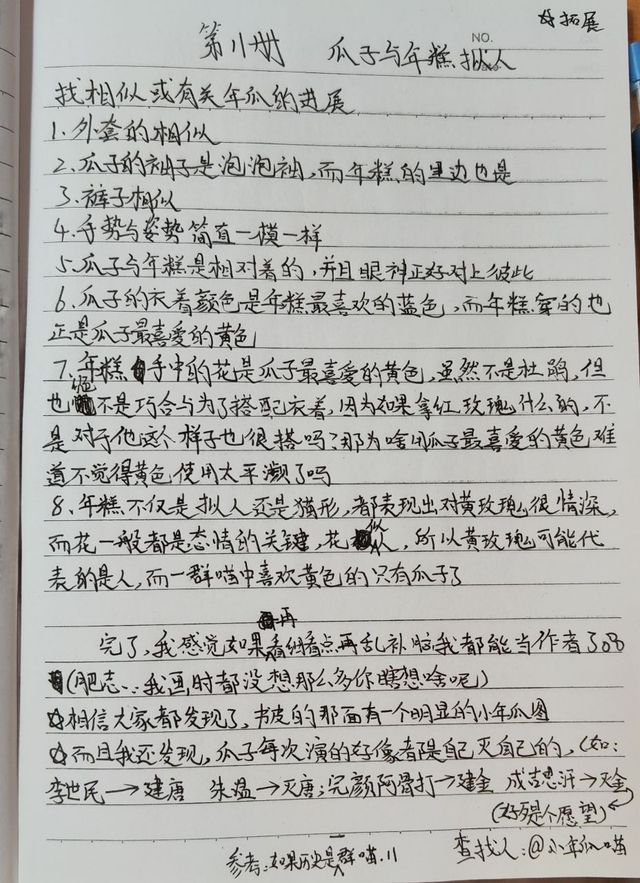 ☆拓展
第11册 瓜子与年糕拟人
NO.
找相似或有关年瓜的进展
1.外套的相似
2.瓜子的袖子是泡泡袖,而年糕的里边也是
3.裤子相似
4.手势与姿势简直一模一样
5.瓜子与年糕是相对着的,并且眼神正好对上彼此
6.瓜子的衣着颜色是年糕最喜欢的蓝色,而年糕穿的也
正是瓜子最喜爱的黄色
7、年糕手中的花是瓜子最喜爱的黄色,虽然不是杜鹃,但
也绝不是巧合与为了搭配衣着,因为如果拿红玫瑰什么的,不
是对于他这个样子也很搭吗?那为啥用瓜子最喜爱的黄色难
道不觉得黄色使用太平濒了吗
8、年糕不仅是拟人还是猫形,都表现出对黄玫瑰很情深,
而花一般都是恋情的关键,花似人,所以黄玫瑰可能代
表的是人,而一群喵中喜欢黄色的只有瓜子了
完了,我感觉如果再看细看点再乱补脑我都能当作者了
(肥志:我画时都没想那么多你瞎想啥呢)
☆相信大家都发现了,书皮的那面有一个明显的小年瓜图
☆而且我还发现,瓜子每次演的好像都是自己灭自己的,(如:
李世民→建唐 朱温→灭唐;完颜阿骨打→建金 成吉思汗→灭金
(好多是个愿望)
参考:如果历史是群喵.11
查找人:@小年瓜喵